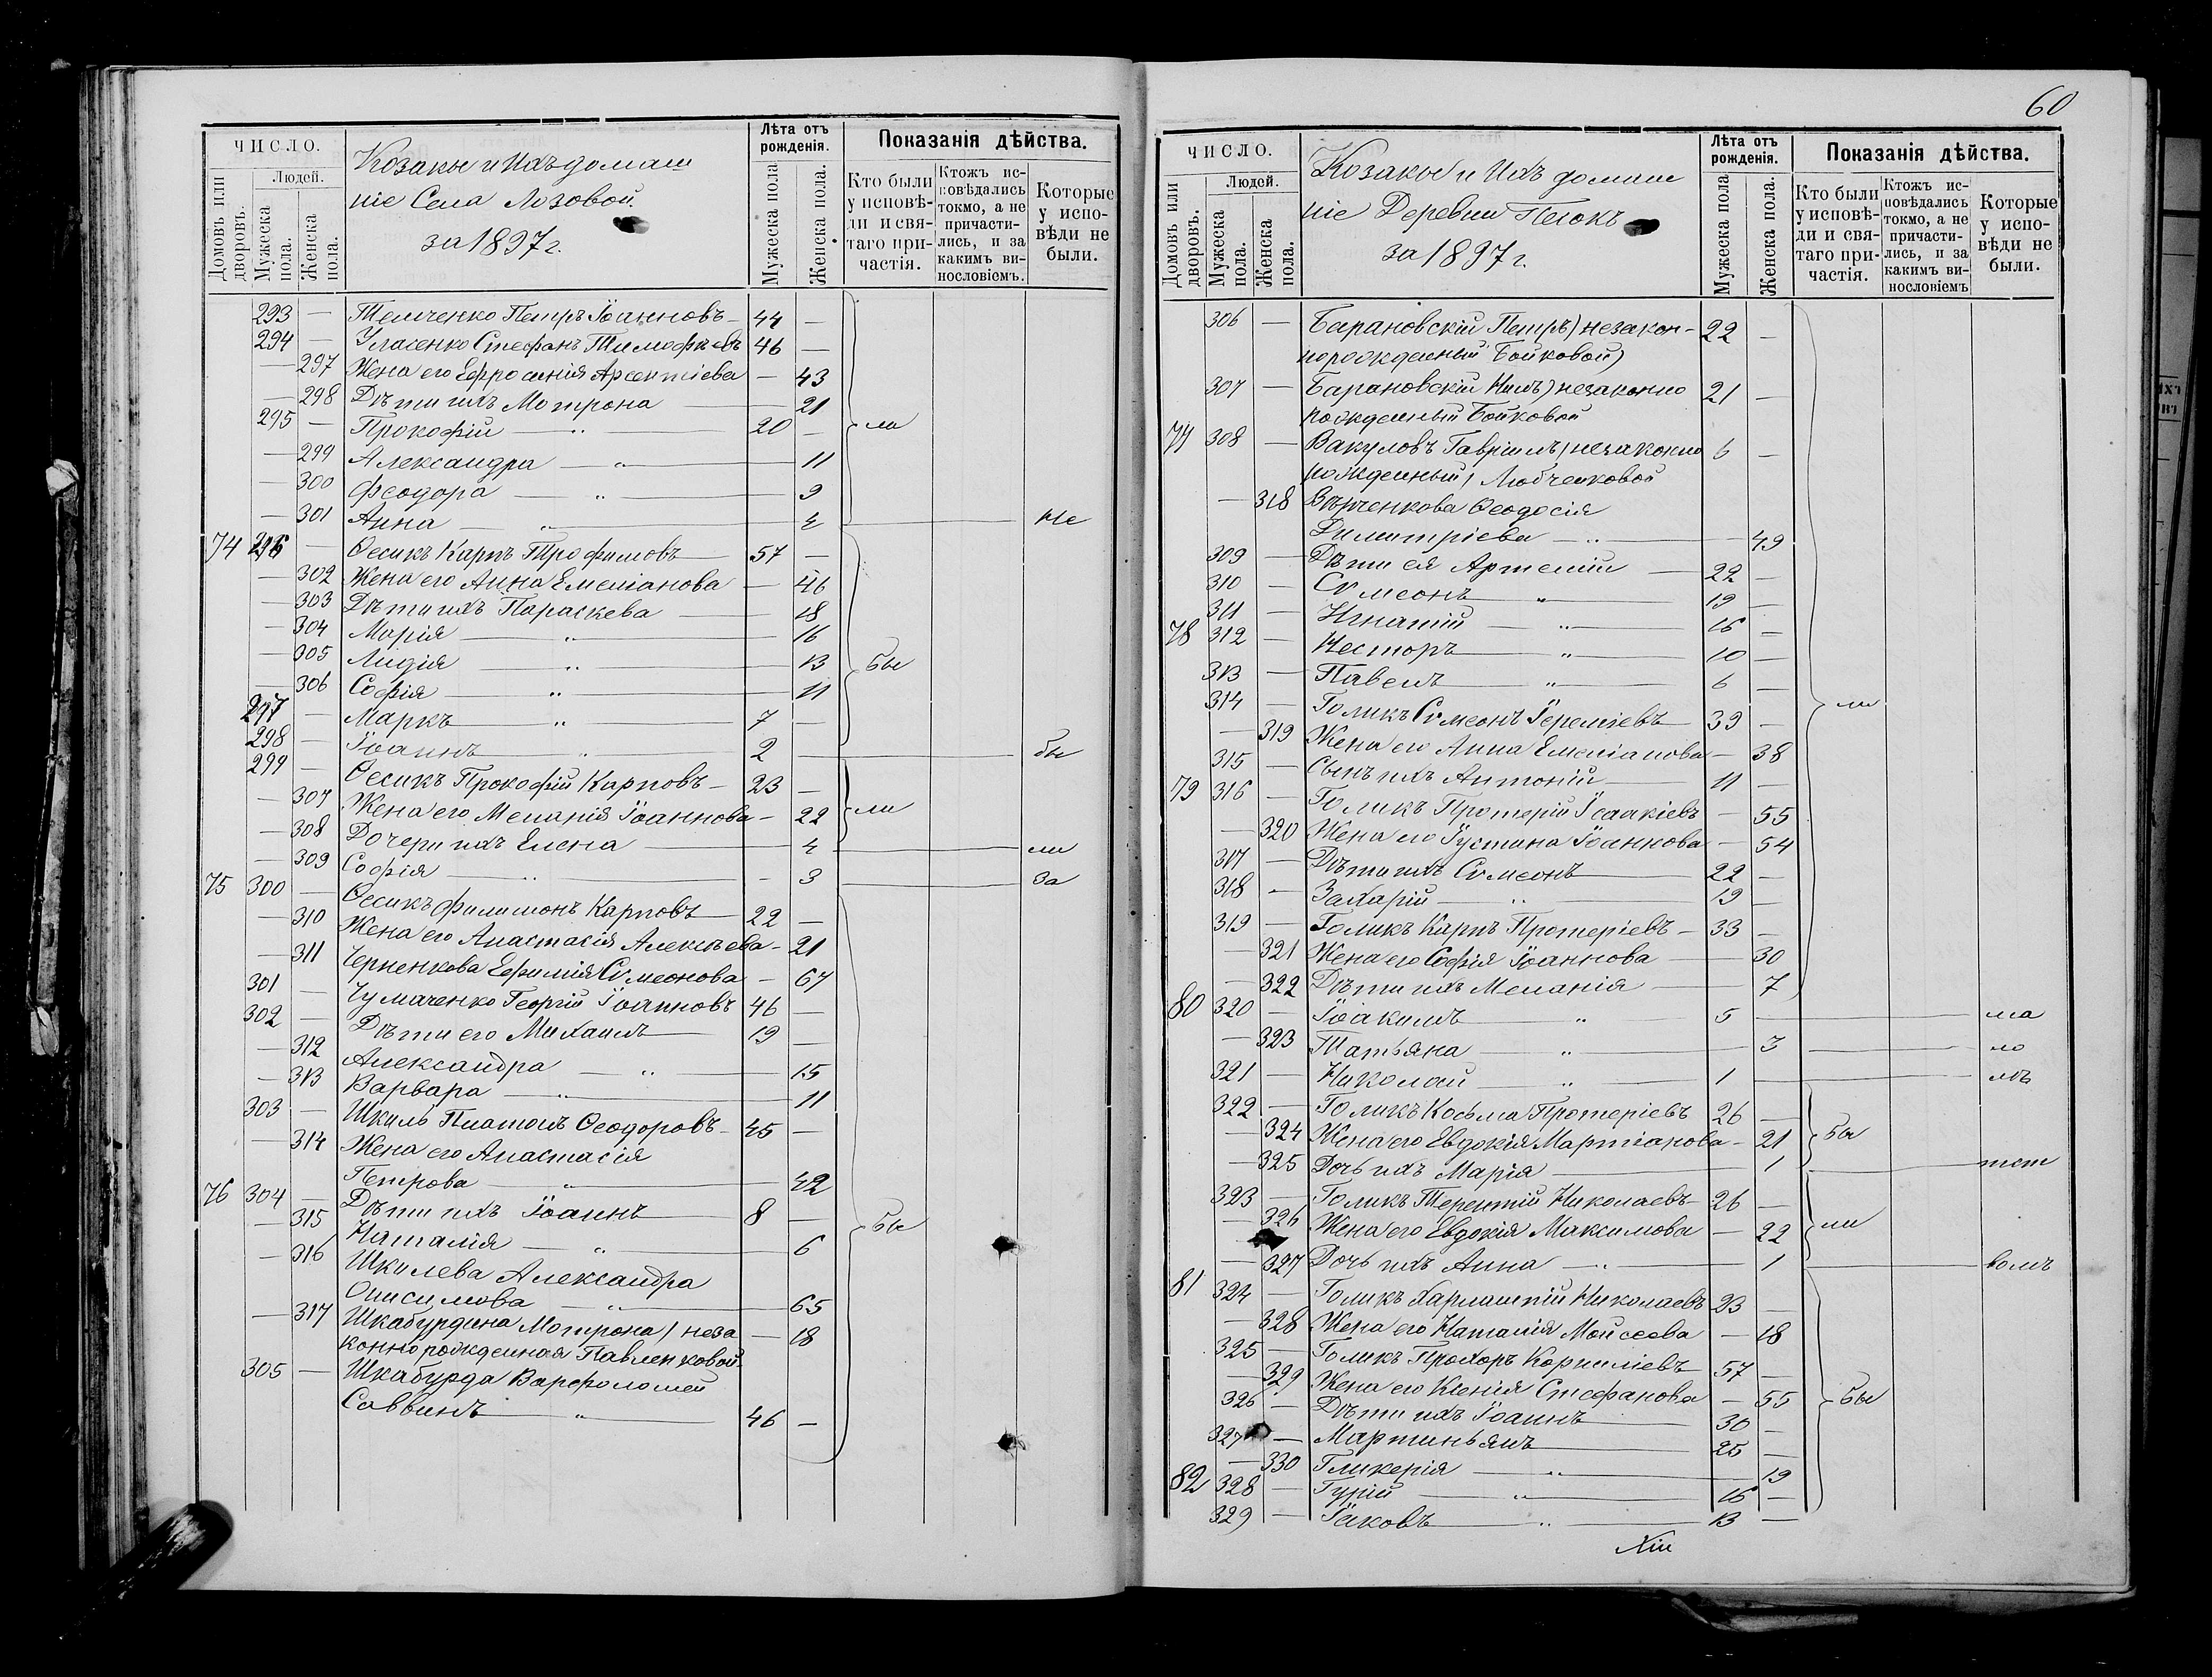 ЧИСЛО.
Людей.
Домовъ или дворовъ.
Мужеска пола.
Женска пола.
Козаки и Ихъ домаш
ніе Села Лозовой
за 1897 г.
Лѣта отъ рожденія.
Мужеска пола
Женска пола.
Показанія дѣйства.
Кто были у исповѣди и святаго причастія.
Ктожъ исповѣдались токмо, а не причастились, и за какимъ винословіемъ.
Которые у исповѣди не были.
293 — Темченко Петръ Іоанновъ 44 —
294 — Уласенко Стефанъ Тимофѣевъ 46 —
— 297 Жена его Ефросинія Арсентіева — 43
— 298 Дѣти ихъ Мотрона — 21
295 — Прокофій — „ — 20 — ли
— 299 Александра — „ — 11
— 300 Феодора — „ — 9
— 301 Анна — „ — 4 — Не
74 296 — Ѳесикъ Карпъ Трофимовъ 57 —
— 302 Жена его Анна Емеліанова — 46
— 303 Дѣти ихъ Параскева — 18
— 304 Марія — „ — 16
— 305 Лидія — „ — 13 бы
— 306 Софія — „ — 11
297 — Маркъ „ 7 —
298 — Іоаннъ „ 2 — бы
299 — Ѳесикъ Прокофій Карповъ — 23 —
— 307 Жена его Меланія Іоаннова — 22 ли
— 308 Дочери ихъ Елена — 4 — ли
— 309 Софія — „ — 3 — За
75 300 — Ѳесикъ Филимонъ Карповъ 22 —
— 310 Жена его Анастасія Алексѣева — 21
— 311 Черненкова Ефимія Сѵмеонова — 67
301 — Чумаченко Георгій Іоанновъ 46 —
302 — Дѣти его Михаилъ 19 —
— 312 Александра — „ — 15
— 313 Варвара — „ — 11
303 — Шкиль Платонъ Ѳеодоровъ 45 —
— 314 Жена его Анастасія
Петрова — „ — 42
76 304 — Дѣти ихъ Іоаннъ 8 —
— 315 Наталія — „ — 6 бы
— 316 Шкилева Александра
Онисимова — „ — 65
— 317 Шкабурдина Мотрона / неза — 18
коннорожденная Павленковой
305 — Шкабурда Варфоломей
Саввинъ — „ — 46 —
60
ЧИСЛО.
Людей.
Домовъ или дворовъ.
Мужеска пола.
Женска пола.
Козаки и Ихъ домаш
ніе Деревни
за 1897 г.
Лѣта отъ рожденія.
Мужеска пола
Женска пола.
Показанія дѣйства.
Кто были у исповѣди и святаго причастія.
Ктожъ исповѣдались токмо, а не причастились, и за какимъ винословіемъ
Которые у исповѣди не были.
306 — Барановскій Петръ) незакон- 22 —
норожденный Бойковой)
307 — Барановскій Нилъ) незаконно 21 —
рожденный Бойковой
77 308 — Вакуловъ Гавріилъ / незаконно 6 —
рожденный / Любченковой
— 318 Вѣрченкова Ѳеодосія
Димитріева — „ — 49
309 — Дѣти ея Артемій — 22 —
310 — Сѵмеонъ „ 19 —
311 — Игнатій — „ 16 —
78 312 — Несторъ „ 10 —
313 — Павелъ „ 6 —
314 — Голикъ Сѵмеонъ Іереміевъ 39 — ли
— 319 Жена его Анна Емеліанова — 38
315 — Сынъ ихъ Антоній — 11 —
79 316 — Голикъ Протерій Ісаакіевъ — 55
— 320 Жена его Іустина Іоаннова — 54
317 — Дѣти ихъ Сѵмеонъ 22 —
318 — Захарій — „ 19 —
319 — Голикъ Карпъ Протеріевъ — 33 —
— 321 Жена его Софія Іоаннова — 30
— 322 Дѣти ихъ Меланія — 7
80 320 — Іоакимъ „ 5 — ма
— 323 Татьяна — „ — 3 — ло
321 — Николай — „ — 1 — лѣ
322 — Голикъ Косьма Протеріевъ 26 —
— 324 Жена его Евдокія Мартіанова — 21 бы
— 325 Дочь ихъ Марія — 1 — тст
323 — Голикъ Терентій Николаевъ 26 —
— 326 Жена его Евдокія Максимова — 22 ли
— 327 Дочь ихъ Анна — „ — 1 — вомъ
81 324 — Голикъ Харлампій Николаевъ 23 —
— 328 Жена его Наталія Моисеева — 18
325 — Голикъ Прохоръ Корниліевъ 57 —
— 329 Жена его Ксенія Стефанова — 55 бы
326 — Дѣти ихъ Іоаннъ 30 —
327 — Мартиньянъ 25 —
— 330 Гликерія — „ — 19
82 328 — Гурій — „ — 16 —
329 — Іаковъ „ 13 —